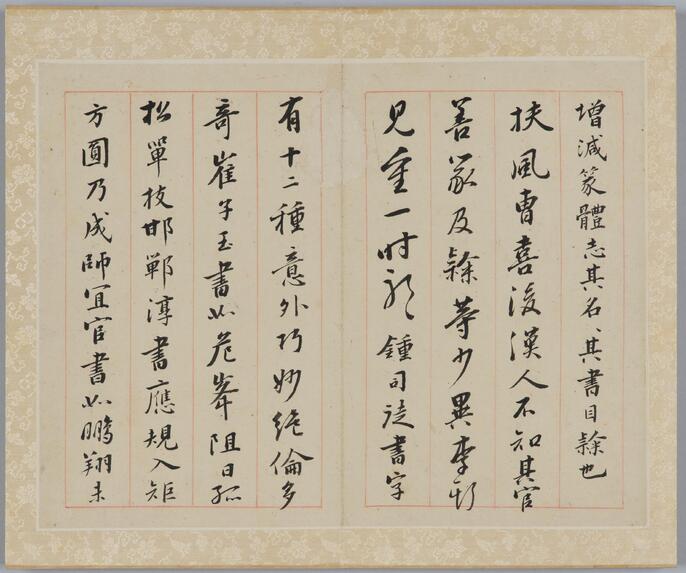 增減篆體志其名、其書目隸也
扶風曹喜後漢人不知其官
善篆及隸等少異李斯
見重一时
鍾司徒書字
有十二種意外巧妙絕倫多
奇崔子玉書如危峯阻日孤
松單枝邯鄲淳書應規入矩
方圓乃成師宜官書如鵬翔未